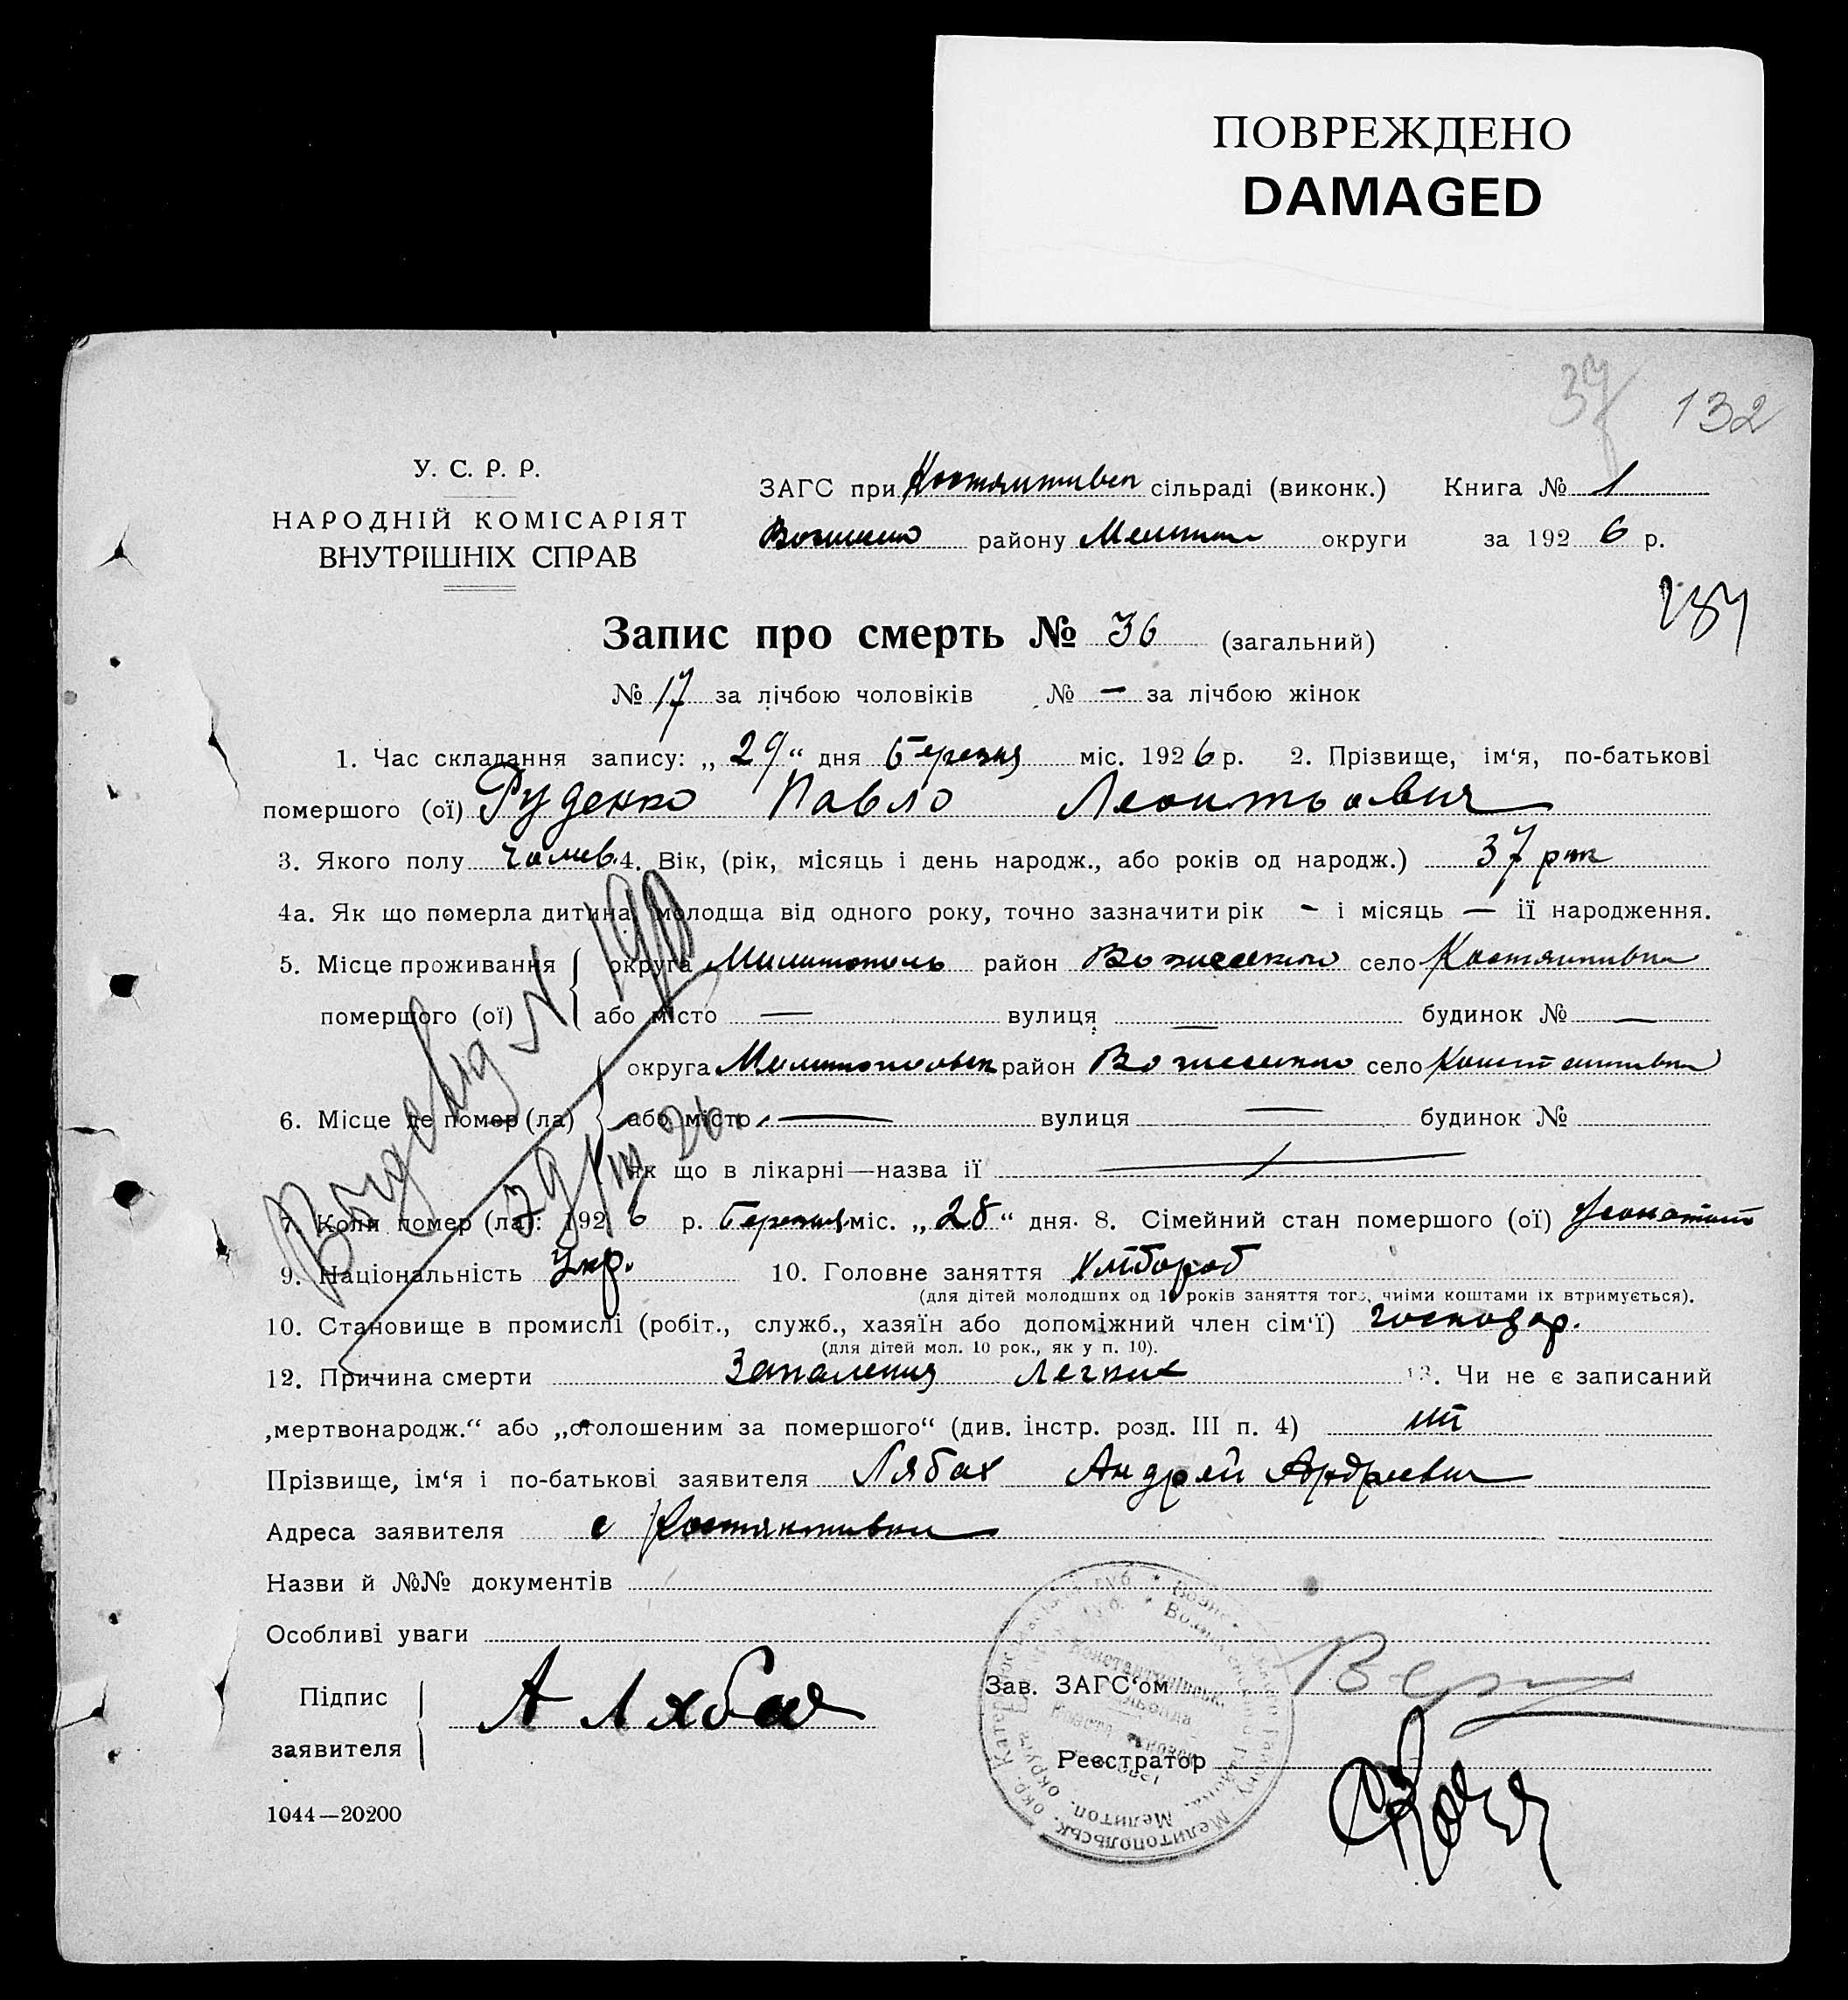 ПОВРЕЖДЕНО
DAMAGED
37 132
У. С. Р. Р.
НАРОДНІЙ КОМІСАРІЯТ
ВНУТРІШНІХ СПРАВ
ЗАГС при сільраді (виконк.) Книга № 1
району округи за 1926 р.
Запис про смерть № 36 (загальний)
№ 17 за лічбою чоловіків № — за лічбою жінок
1. Час складання запису: „29“ дня березня міс. 1926 р. 2. Прізвище, ім‘я, по-батькові
помершого (ої) Руденко Павло Леонтьович
3. Якого полу 4. Вік, (рік, місяць і день народж., або років од народж.) 37 рок
4а. Як що померла дитина, молодща від одного року, точно зазначити рік - і місяць — ії народження.
5. Місце проживання округа Мелитополь район село Костянтивка
помершого (ої) або місто — вулиця — будинок № —
округа район село
6. Місце де помер (ла) або місто — вулиця — будинок №
як що в лікарні—назва ії
7. Коли помер (ла): 1926 р. березня міс. „28“ дня. 8. Сімейний стан помершого (ої)
9. Національність Укр. 10. Головне заняття хлібороб
(для дітей молодших од 10 років заняття того, чиїми коштами їх втримується).
10. Становище в промислі (робіт., служб., хазяїн або допоміжний член сім‘ї) господар.
(для дітей мол. 10 рок., як у п. 10).
12. Причина смерти Запалення легких 13. Чи не є записаний
„мертвонародж.“ або „оголошеним за помершого“ (див. інстр. розд. III п. 4) ні
Прізвище, ім‘я і по-батькові заявителя Лябах Андрей Андреевич
Адреса заявителя с Костянтивки
Назви й №№ документів
Особливі уваги
Підпис
заявителя А Лябах
Зав. ЗАГС‘ом
Реєстратор
1044—20200
29/III 26.